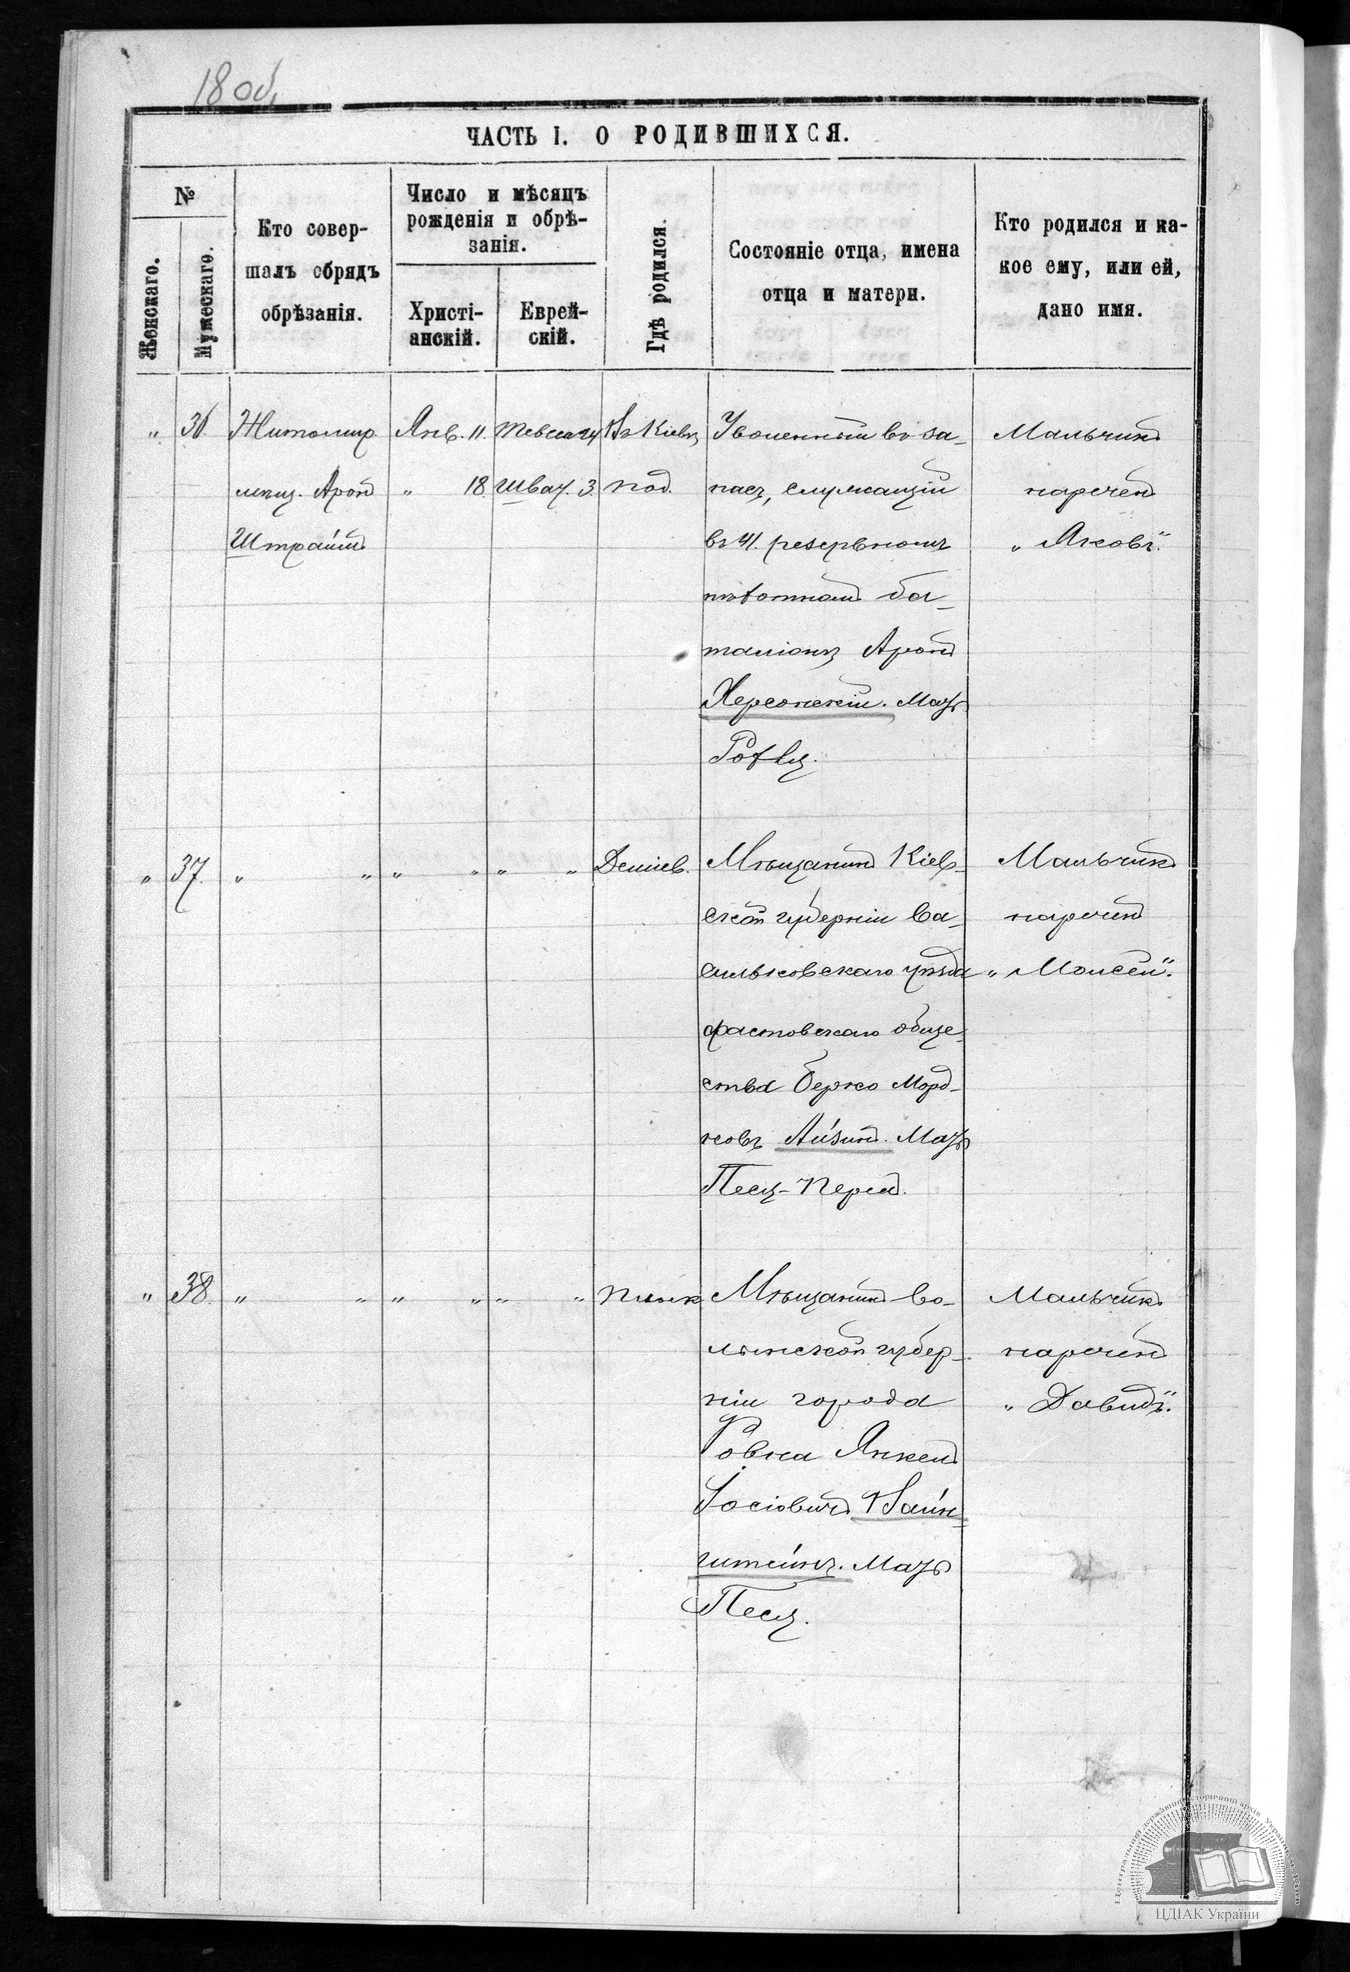 18 об.
ЧАСТЬ I. О РОДИВШИХСЯ.
№
Женскаго.
Мужескаго.
Кто совер-
шалъ обрядъ
обрѣзанія.
Число и мѣсяцъ
рожденія и обрѣ-
занія.
Христі-
анскій.
Еврей-
скій.
Гдѣ родился.
Состояніе отца, имена
отца и матери.
Кто родился и ка-
кое ему, или ей,
дано имя.
„ 36. Житомир.
мѣщ. Аронъ
Штраймъ
Янв. 11.
„ 18
Тевеса 24
Шват. 3.
Въ Кіевѣ
под.
Уволенный въ за-
пасъ, служащій
въ 41. резервномъ
пѣхотномъ ба-
таліонѣ Аронъ
Херсонскій. Мать
Мальчикъ
нареченъ
„Яковъ“.
„ 37. „ „ „ „ „ „ Деміев.
Мѣщанинъ Кіев-
ской губерніи Ва-
сильковскаго уѣзда
фастовскаго обще-
ства Берко Морд-
ковъ Айзинъ. Мать
Песя-Перля.
Мальчикъ
нареченъ
„Моисей“.
„ 38. „ „ „ „ „ „ Плоск.
Мѣщанинъ Во-
лынской губер-
ніи города
Ровна Янкель
Іосіовичъ Вайн-
штейнъ. Мать
Песя.
Мальчикъ
нареченъ
„Давидъ“.
Центральний державний історичний архів України, м. Київ
ЦДІАК України